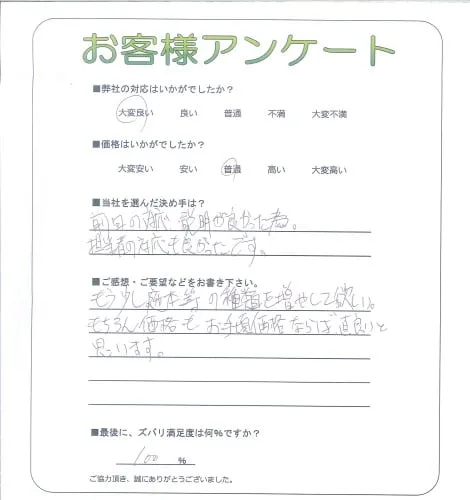 お客様アンケート
■弊社の対応はいかがでしたか？
大変良い 良い 普通 不満 大変不満
■価格はいかがでしたか？
大変安い 安い 普通 高い 大変高い
■当社を選んだ決め手は？
前日の対応 説明が良かった為。
担当者の対応も良かったです。
■ご感想・ご要望などをお書き下さい。
もう少し 等 の種類を増やして欲しい。
もちろん価格も お手頃価格ならば 直良いと
思います。
■最後に、ズバリ満足度は何%ですか？
100 %
ご協力頂き、誠にありがとうございました。